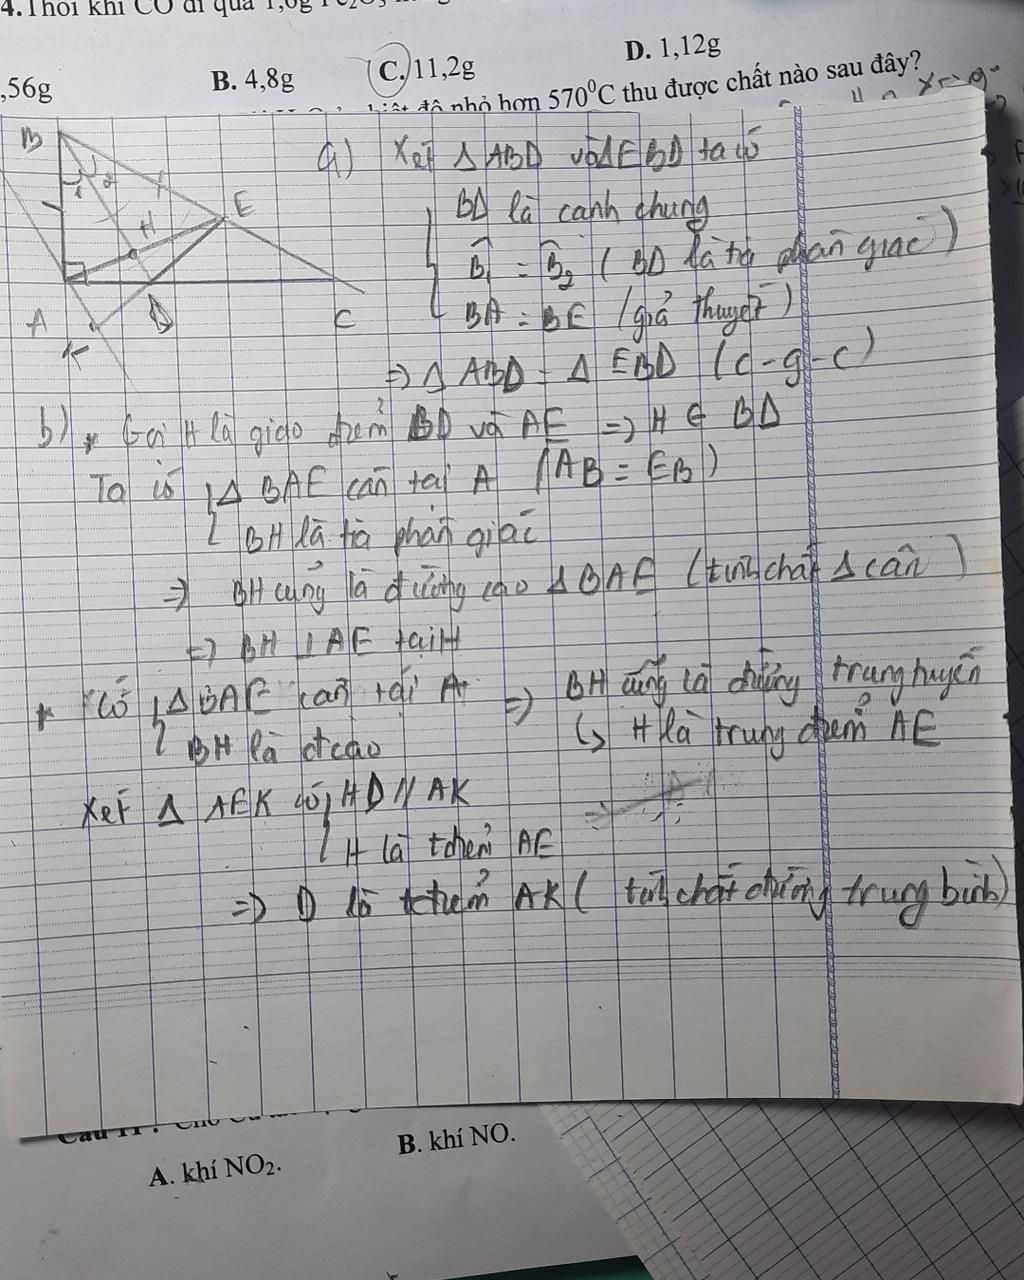 4. Thổi khí CO đi qua
,56g B. 4,8g C. 11,2g D. 1,12g
nhỏ hơn 570⁰C thu được chất nào sau đây?
B
1 2
H
E
A
D
C
K
a) Xét Δ ABD và Δ EBD ta có
BD là cạnh chung
B̂₁ = B̂₂ ( BD là tia phân giác )
BA = BE ( giả thuyết )
=> Δ ABD = Δ EBD ( c - g - c )
b) * Gọi H là giao điểm BD và AE => H ∈ BD
Ta có Δ BAE cân tại A ( AB = EB )
BH là tia phân giác
=> BH cũng là đường cao Δ BAE ( tính chất Δ cân )
=> BH ⊥ AE tại H
* Có Δ BAE cân tại A => BH cũng là đường trung tuyến
BH là đ cao ↳ H là trung điểm AE
Xét Δ AEK có HD // AK
H là t điểm AE
=> D là t điểm AK ( tính chất đường trung bình )
A. khí NO₂. B. khí NO.